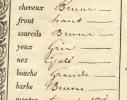 cheveux Bruns
front haut
sourcils Bruns
yeux Gris
nez
bouche Grande
barbe Brune
menton